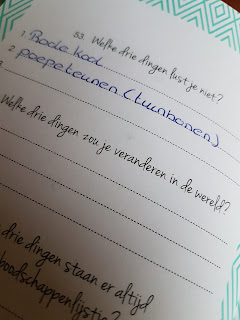 53 Welke drie dingen lust je niet?
1. Rode kool
2 poepeteunen (tuinbonen)
3
Welke drie dingen zou je veranderen in de wereld?
drie dingen staan er altijd
boodschappenlijstje?